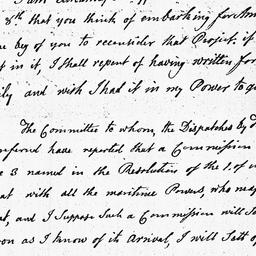 8th that you think of embarking for Am
beg of you to reconsider that Project. if
t in it, I shall repent of having written for
ily and wish I had it in my Power to
The Committee to whom, the Dispatches by
have reported that a Commission
e 3 named in the Resolution of the 1. of
at with all the maritime Powers, who
t, and I suppose such a Commission will
on as I know of its Arrival, I will Sett of